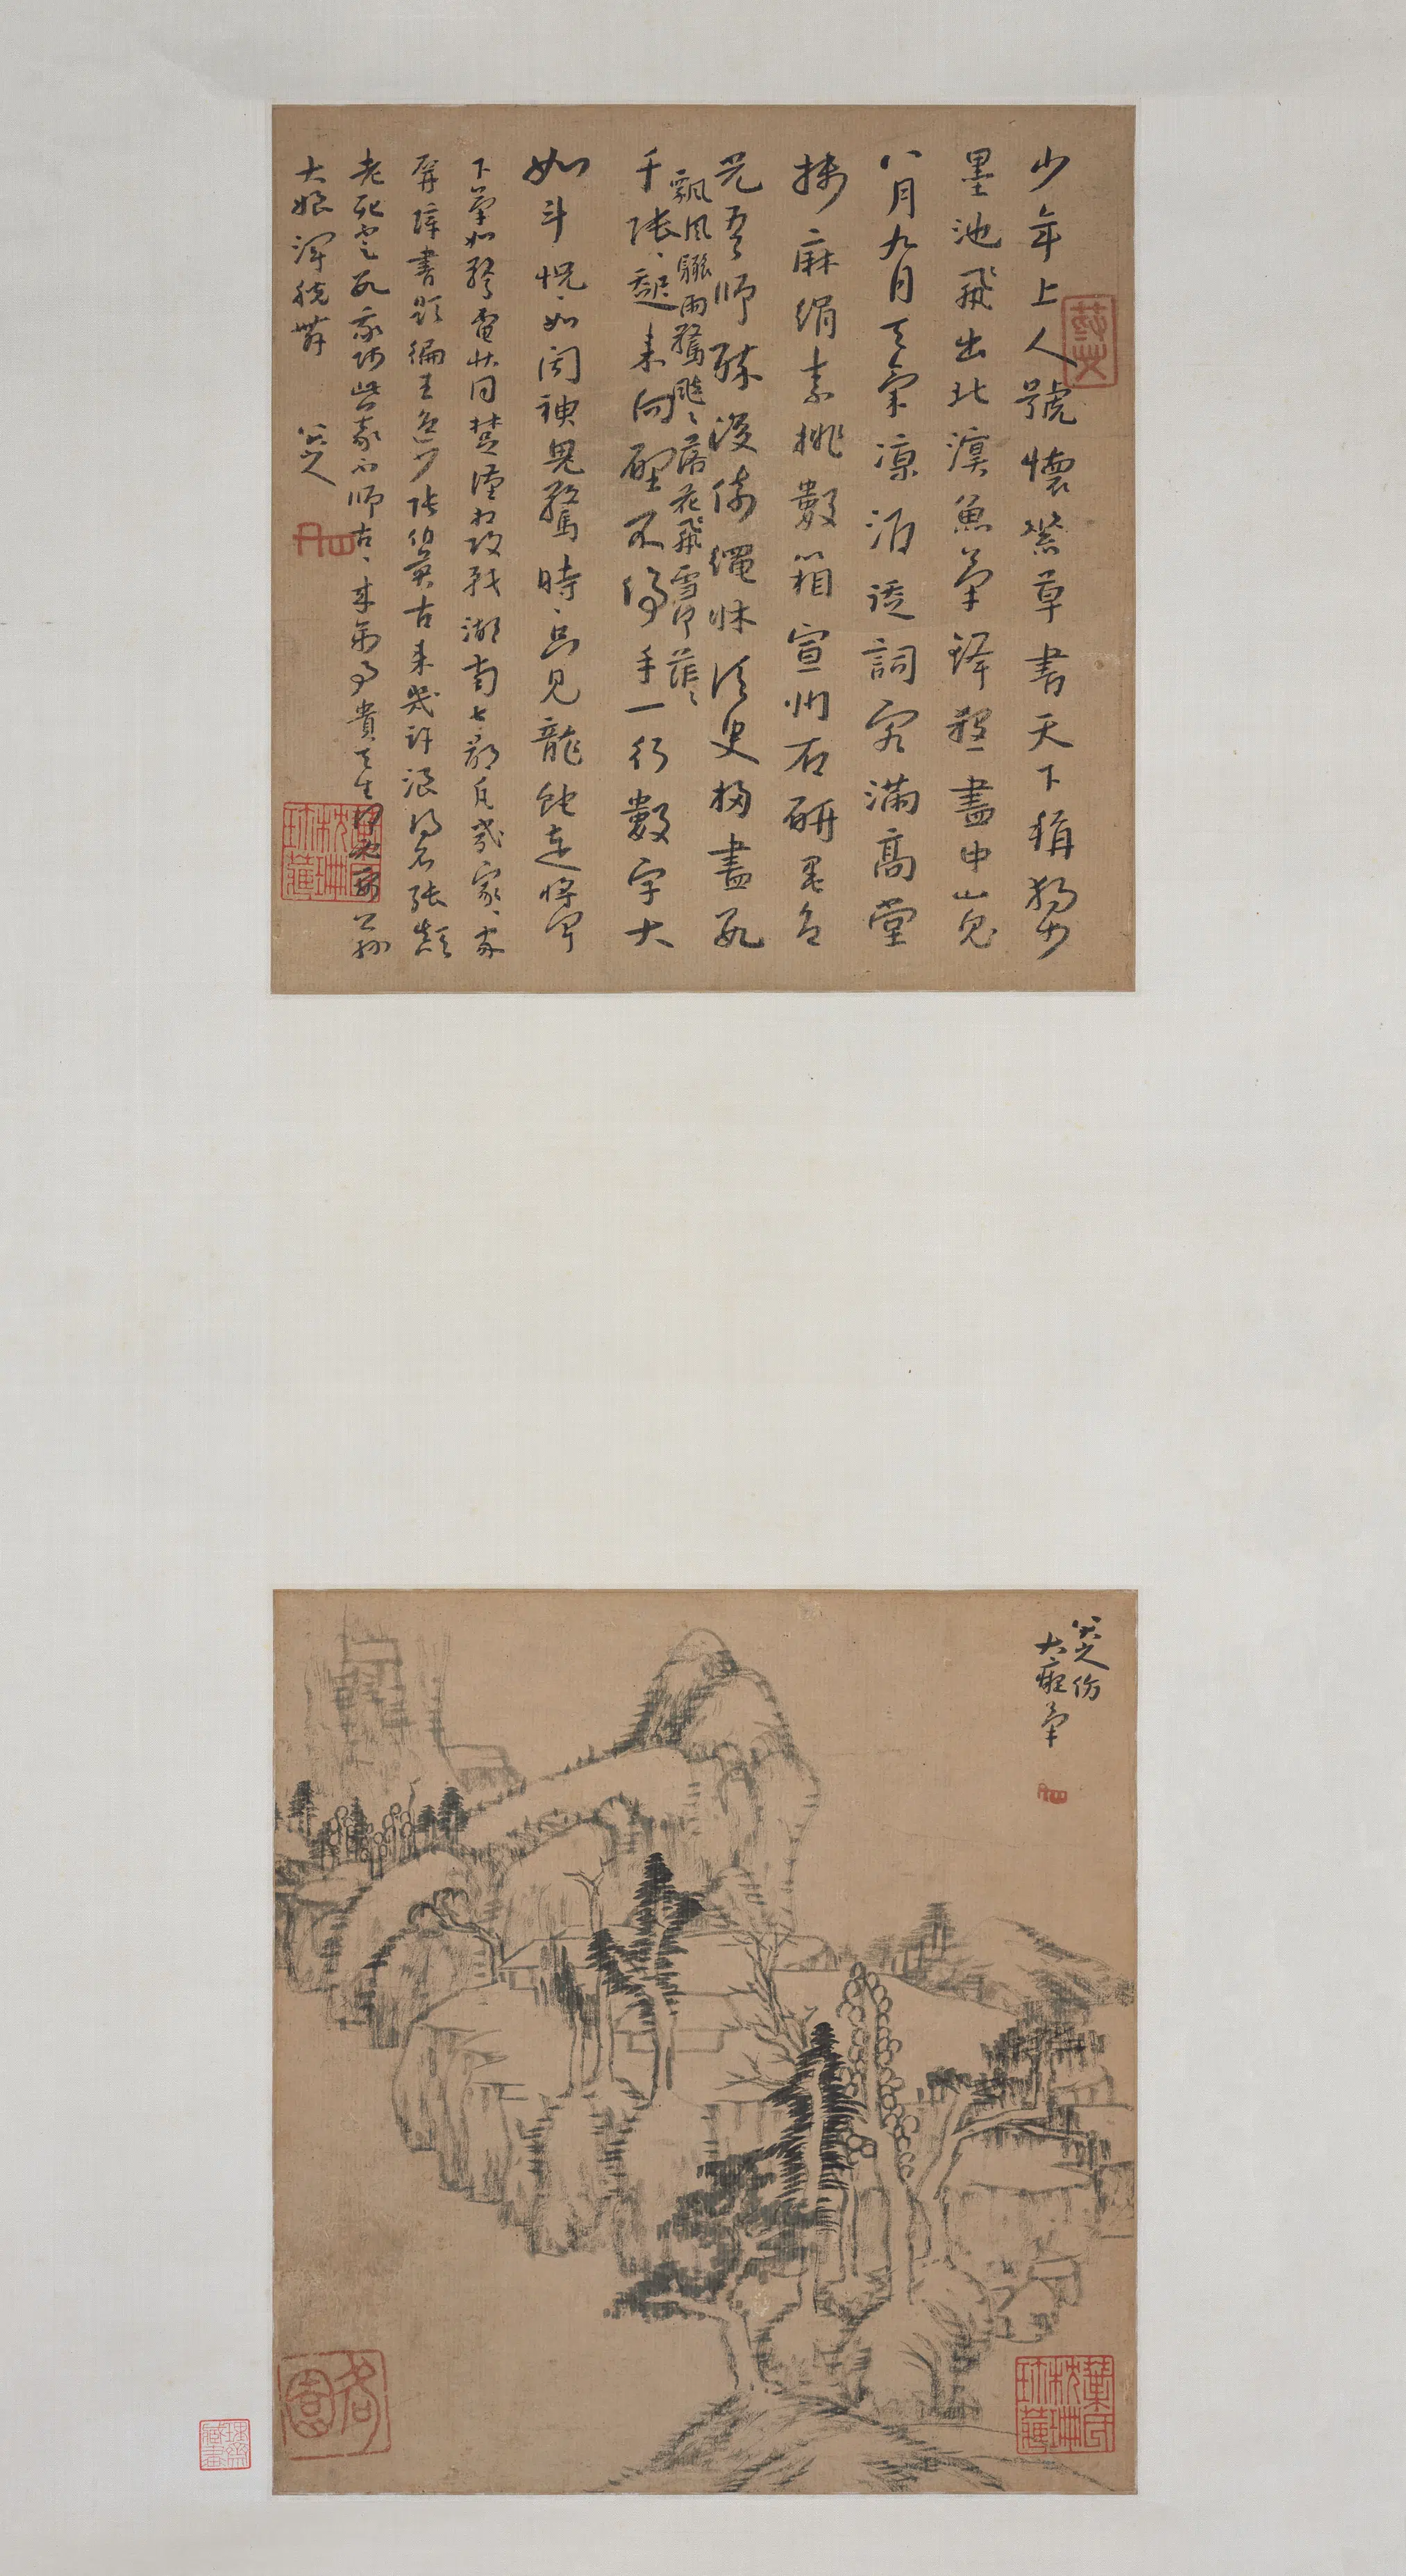 少年上人號懷素草書天下稱獨步
墨池飛出北溟魚筆鋒殺盡中山兔
八月九月天氣凉酒徒詞客滿高堂
牋麻絹素排數箱宣州石硏墨色
光吾師醉後倚繩牀須臾掃盡數
飄風驟雨驚颯〻落花飛雪何茫〻
千張起來向壁不停手一行數字大
如斗怳〻如聞神鬼驚時〻只見龍蛇走
下筆如驚電狀同楚漢相攻戰湖南七郡凡幾家〻家
屏障書題徧王逸少張伯英古來幾許浪得名張顛
老死數我師此義不師古〻來萬事貴天生何必要公孫
大娘渾脫舞 八大山人
八大山人仿
大癡筆